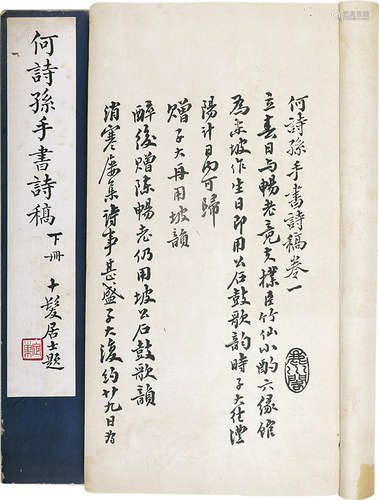 何詩孫手書詩稿
下冊
十髮居士題
何詩孫手書詩稿卷一
立春日与暢老竟夫檏臣竹仙小酌六缘館
為東坡作生日即用公石鼓歌韵時子大往澧
陽计日内可歸
贈子大再用坡韻
醉後贈陈暢老仍用坡公石鼓歌韻
消寒屡集詩事甚盛子大復约廿九日为